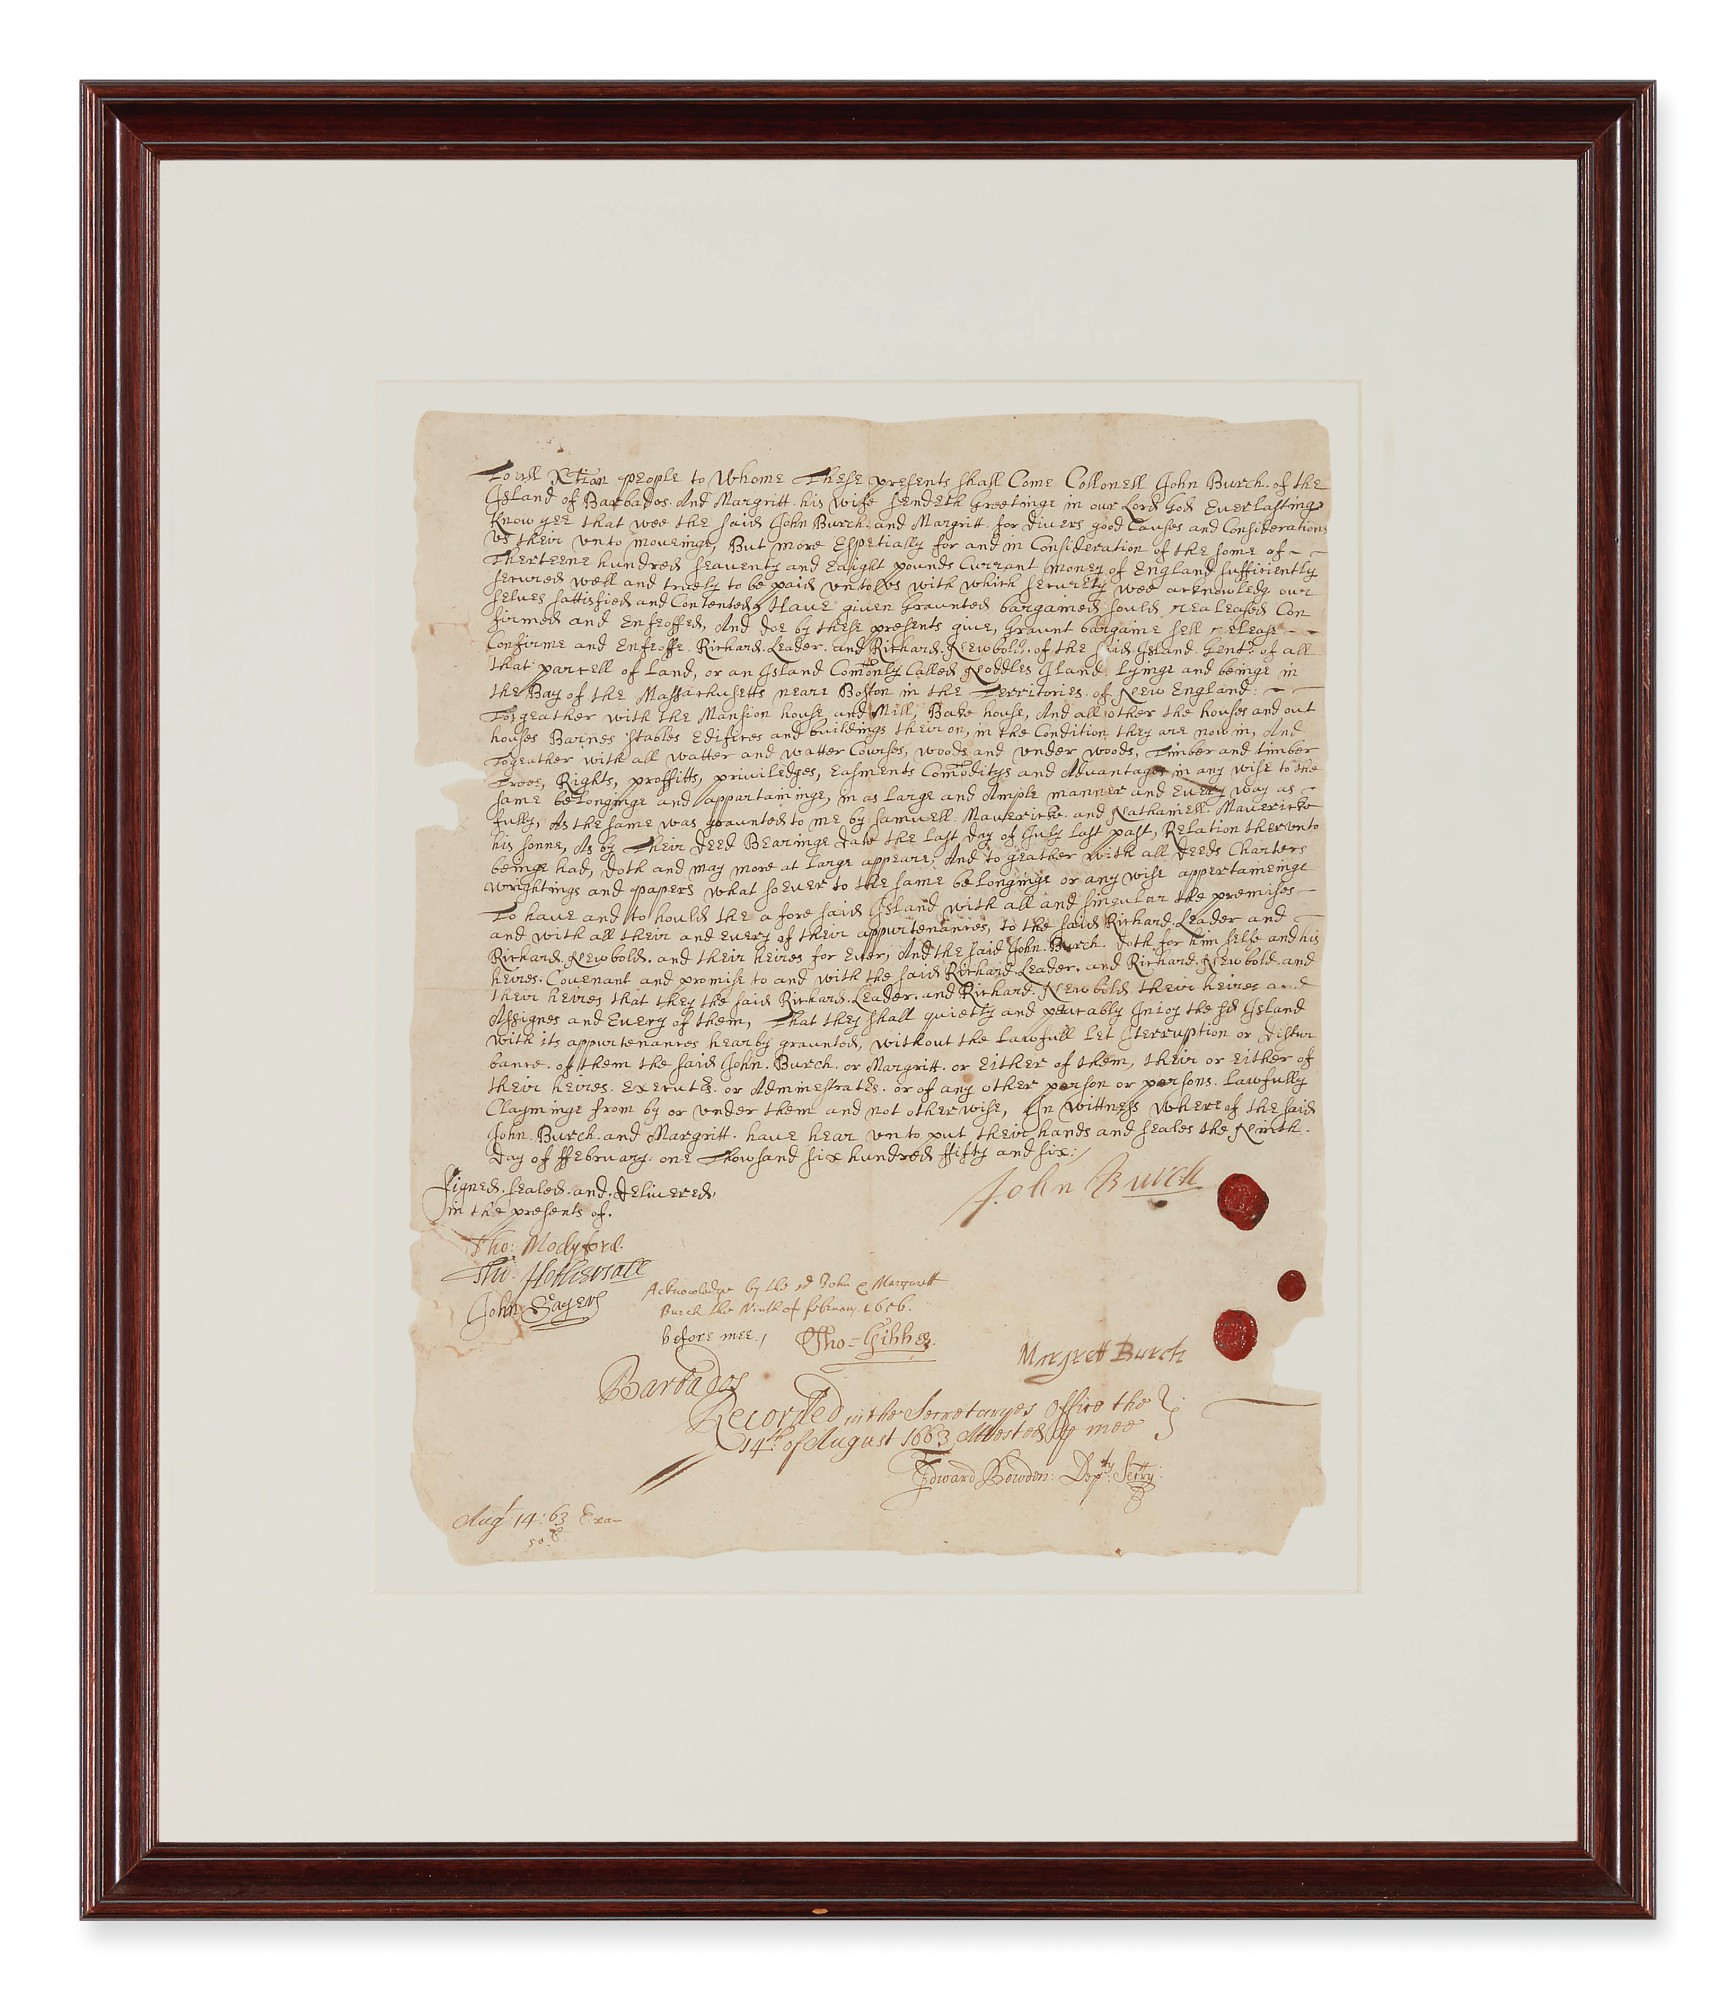 To all Xtian people to Whome These presents shall Come Collonell John Burch. of the
Island of Barbados. And Margritt. his wife sendeth Greetinge in our Lord God Everlasting
Know yee that wee the said John Burch. and Margritt. for divers good Causes and Considerations
us their unto moveinge, But more Espetially for and in Consideration of the some of
Therteene hundred seaventy and Eaight pounds Currant money of England sufficiently
secured well and truely to be paid unto us with which security wee acknowledg our
selves sattisfied and Contented, Have given Graunted bargained sould realeased Con
firmed and Enfeoffed, And doe by these presents give, Graunt bargaine sell release
Confirme and Enfeoffe. Richard. Leader. and Richard. Newbold. of the said Island. Gentn. of all
that parcell of Land, or an Island Comonly Called Noddles Island. Lyinge and beinge in
the Bay of the Massachusetts neare Boston in the Territories. of New England:
Togeather with the Mansion house and Mill, Bake house, And all other the houses and out
houses Barnes Stables Edifices and buildings their on, in the Condition they are now in, And
Togeather with all watter and watter Courses, woods and under woods, Timber and timber
Trees, Rights, proffitts, priviledges, Easments Comoditys and Advantages in any wise to the
same belonginge and appartaininge, in as Large and Ample manner and Every way as
fully, As the same was graunted to me by Samuell. Mavericke. and Nathaniell. Mavericke
his sonne, As by Their Deed Bearinge date the last day of July last past, Relation therunto
beinge had, doth and may more at Large appeare, And to geather with all Deeds Charters
wrightings and papers what soever to the same belonginge or any wise appertaineinge
To have and to hould the a fore said Island with all and singular the premises
and with all their and every of their appurtenances, to the said Richard. Leader and
Richard. Newbold. and their heires for Ever, And the said John. Burch. doth for him selfe and his
heires. Covenant and promise to and with the said Richard. Leader. and Richard. Newbold. and
their heires that they the said Richard. Leader. and Richard. Newbold their heires and
Assignes and Every of them, That they shall quietly and peacably Injoy the sd Island
with its appurtenances hearby graunted, without the Lawfull Let Iterruption or distur
bance. of them the said John. Burch. or Margritt. or Either of them, their or Either of
their heires. Executs. or Adminestrates. or of any other person or persons. Lawfully
Clayminge from by or under them and not otherwise, In wittness whereof the said
John. Burch. and Margritt. have hear unto put their hands and seales the Ninth.
day of ffebruary. one Thowsand six hundred fifty and six;
John Burch
Signed. sealed. and. delivered,
in the presents of.
Tho: Modyford.
Tho. Hothersall
John Sayers
Acknowledge by the sd John & Margarett
Burch the Ninth of febuary. 1656.
before mee,
Tho Gibbes
Margrett Burch
Barbados
Recorded in the Secretaryes Office the
14th of August 1663 Attested p mee
Edward Bowden: Depty: Secrty:
Augt: 14: 63 Exa